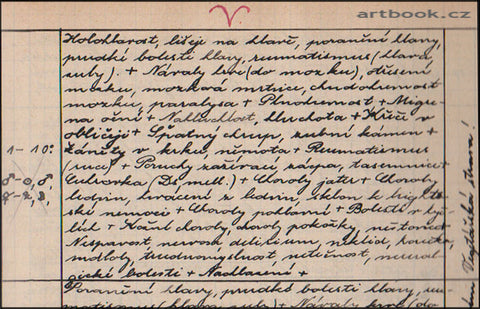 V.
artbook.cz
Holohlavost, lišeje na hlavě, poranění hlavy,
prudké bolesti hlavy, reumatismus (hlava,
zuby). + Návaly krve (do mozku), otřesení
mozku, mozková mrtvice, chudokrevnost
mozku, paralysa + Plnokrevnost + Migre-
na oční + Nahluchlost, hluchota + Křeče v
obličeji + Špatný chrup, zubní kámen +
Záněty v krku, němota + Reumatismus
(ruce) + Poruchy zažívání, zácpa, tasemnice +
Cukrovka (Di. mell.) + Choroby jater + Choroby
ledvin, krvácení z ledvin, sklon k bright-
ské nemoci + Choroby pohlavní + Bolesti v ký-
lích + Kožní choroby, choroby pokožky,
Nespavost, nervosa, delirium, neklid, horečka,
mdloby, trudnomyslnost, netečnost, neural-
gické bolesti + Nadhození +
1 - 10°
Poranění hlavy, prudké bolesti hlavy, reu-
matismus (hlava, zuby) + Návaly krve (do
strava!